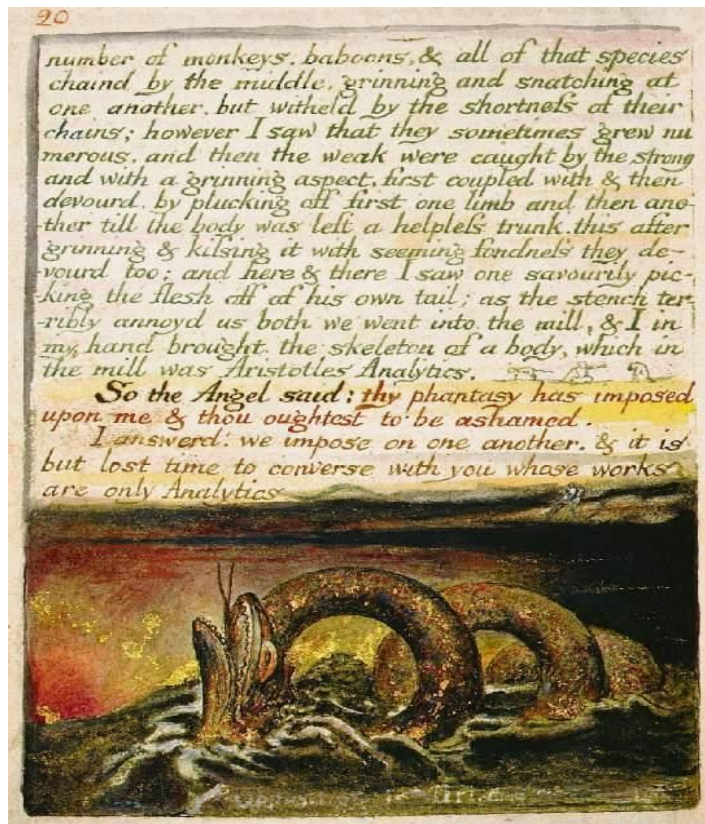 20
number of monkeys, baboons, & all of that species
chaind by the middle, grinning and snatching at
one another, but witheld by the shortneſs of their
chains; however I saw that they sometimes grew nu
merous, and then the weak were caught by the strong
and with a grinning aspect, first coupled with & then
devourd, by plucking off first one limb and then ano-
-ther till the body was left a helpleſs trunk. this after
grinning & kiſsing it with seeming fondneſs they de-
-vourd too; and here & there I saw one savourily pic-
-king the flesh off of his own tail; as the stench ter-
-ribly annoyd us both we went into the mill, & I in
my hand brought the skeleton of a body, which in
the mill was Aristotles Analytics.
So the Angel said: thy phantasy has imposed
upon me & thou oughtest to be ashamed.
I answerd: we impose on one another, & it is
but lost time to converse with you whose works
are only Analytics